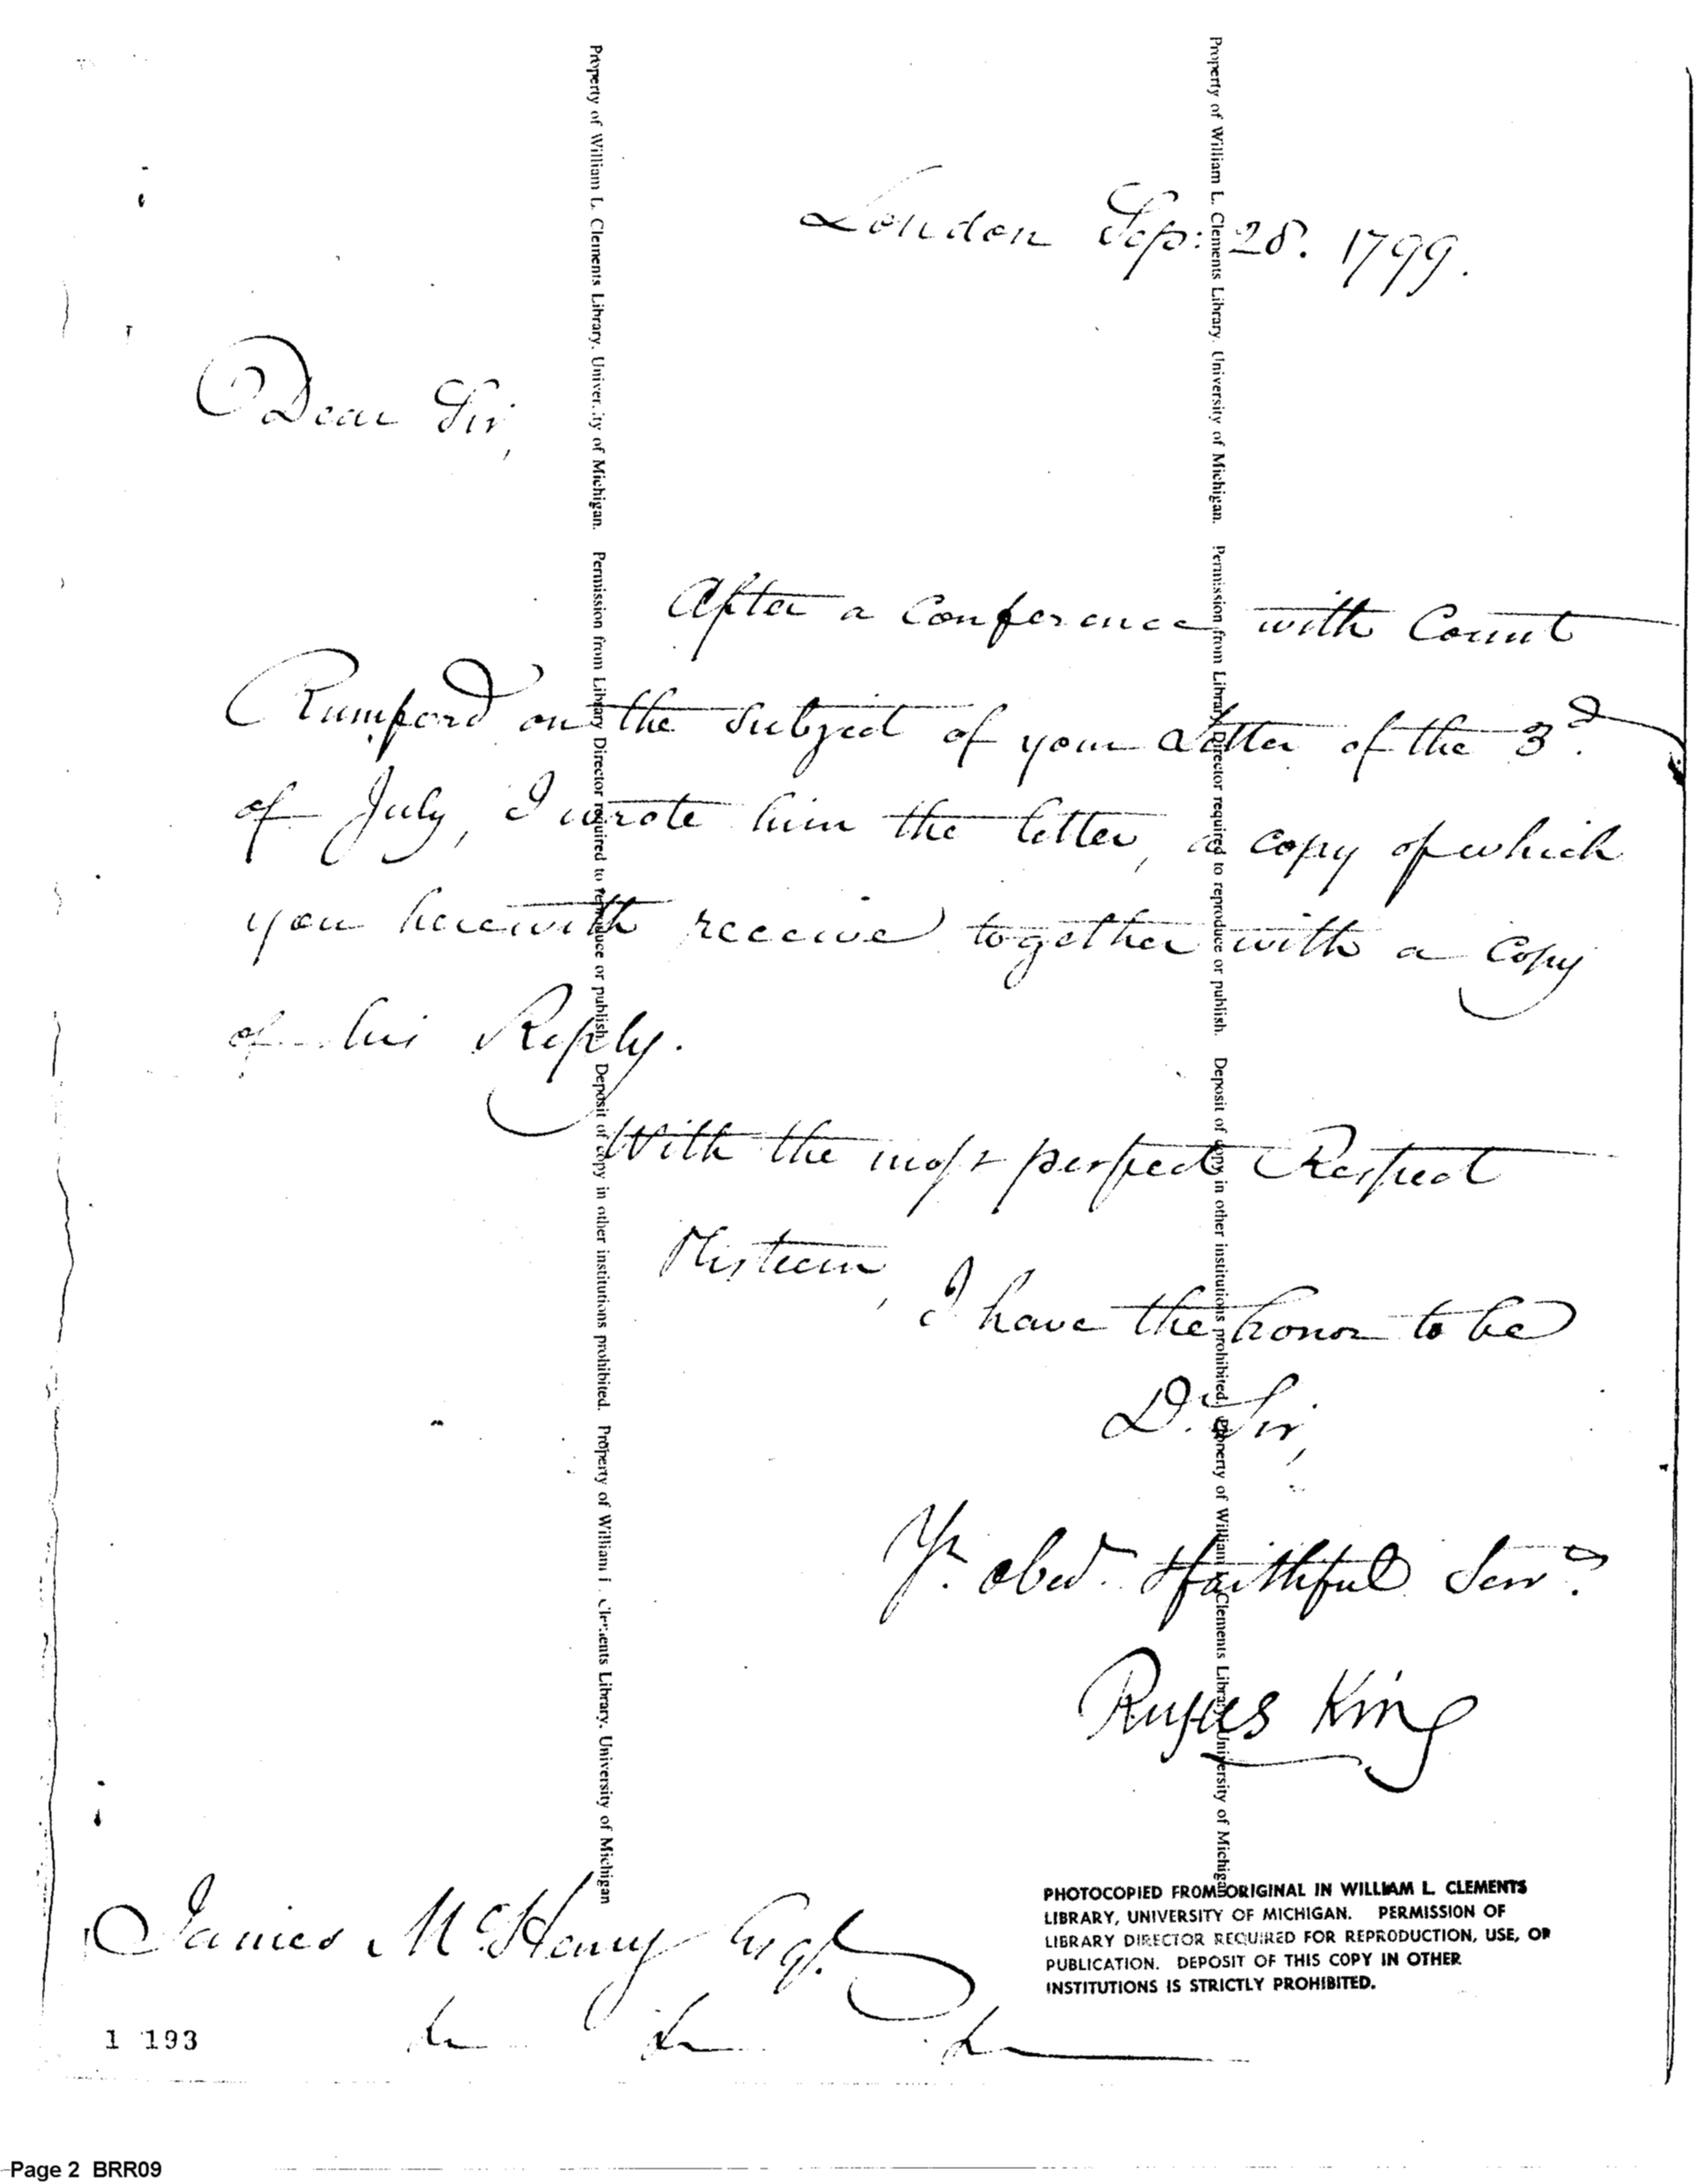 London Sep: 28. 1799.
Dear Sir,
After a conference with Count
Rumford on the subject of your Letter of the 3d.
of July, I wrote him the letter, a copy of which
you herewith receive together with a copy
of his Reply.
With the most perfect Respect
& Esteem,
I have the honor to be
Dr. Sir,
Yr. obed. & faithful Servt.
Rufus King
James McHenry Esqr.
&c &c &c
1 193
PHOTOCOPIED FROM ORIGINAL IN WILLIAM L. CLEMENTS
LIBRARY, UNIVERSITY OF MICHIGAN. PERMISSION OF
LIBRARY DIRECTOR REQUIRED FOR REPRODUCTION, USE, OR
PUBLICATION. DEPOSIT OF THIS COPY IN OTHER
INSTITUTIONS IS STRICTLY PROHIBITED.
Property of William L. Clements Library, University of Michigan. Permission from Library Director required to reproduce or publish. Deposit of copy in other institutions prohibited. Property of William L. Clements Library, University of Michigan
Property of William L. Clements Library, University of Michigan. Permission from Library Director required to reproduce or publish. Deposit of copy in other institutions prohibited. Property of William L. Clements Library, University of Michigan
Page 2 BRR09